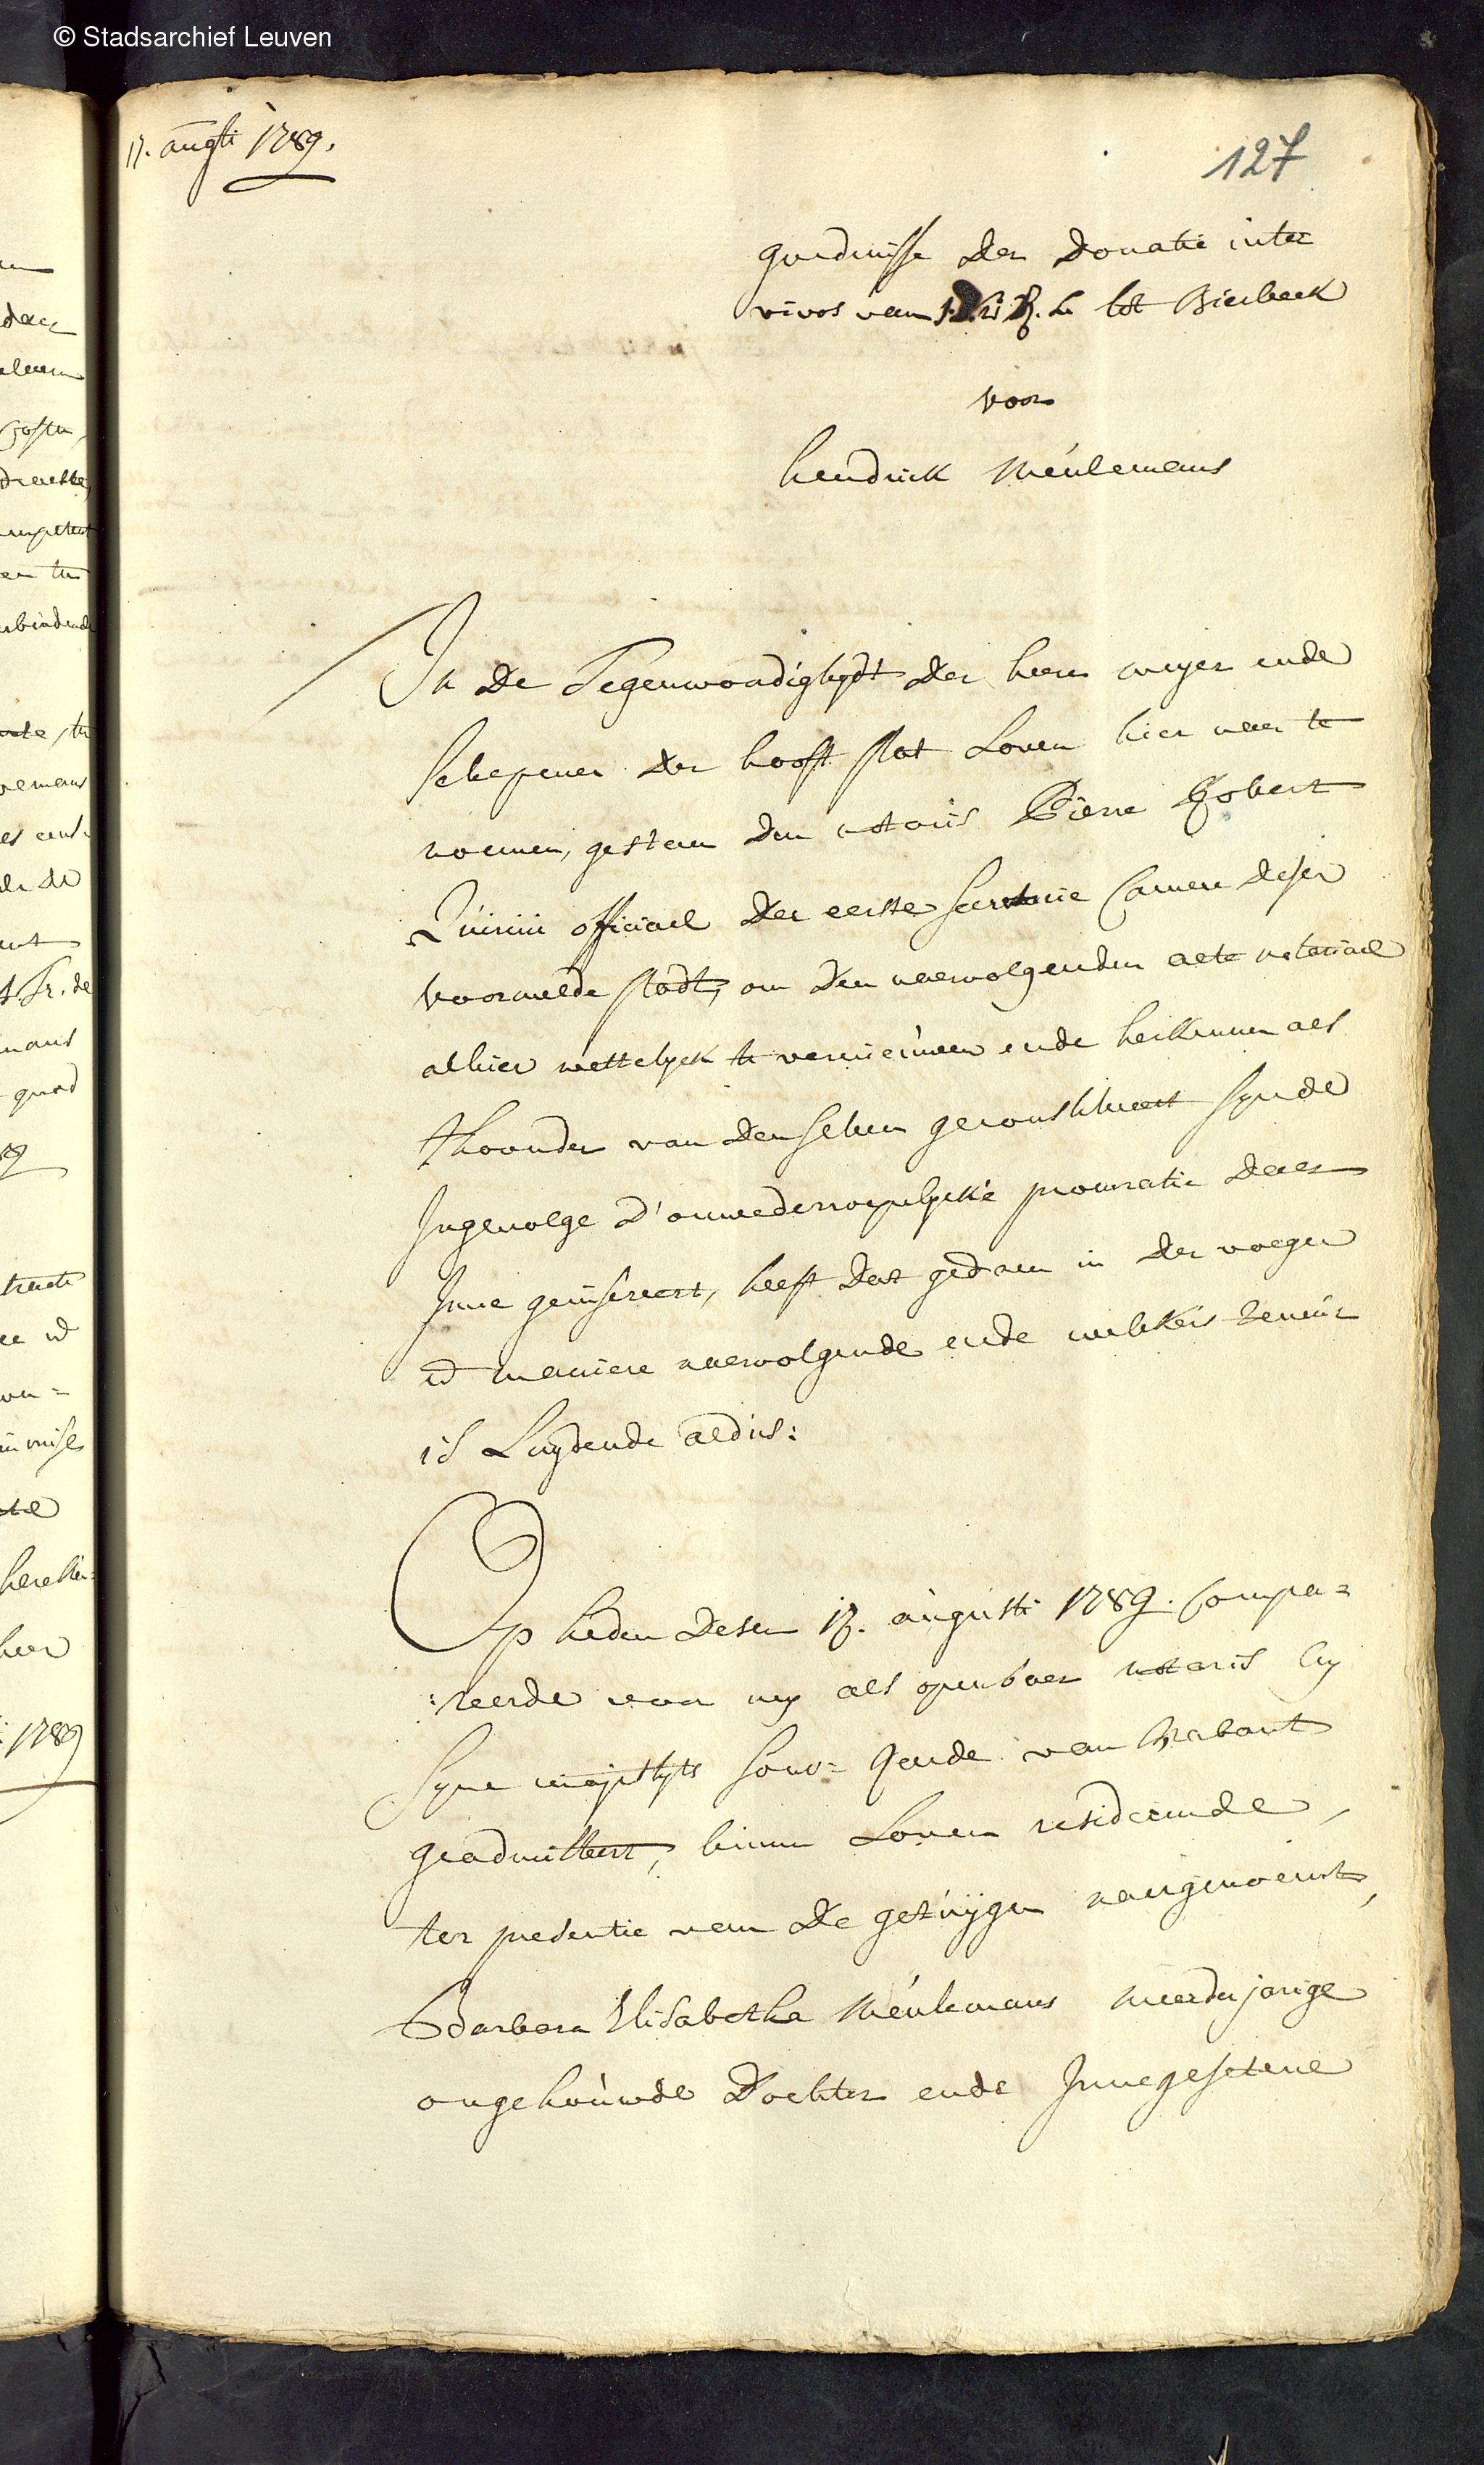 © Stadsarchief Leuven
17. augsti 1789.
127
goedenisse der donatie inter
vivos van tot Bierbeek
voor
hendrick Meulemans
In de Tegenwoordigheyt der heere meyer ende
schepenen der hooft stat Loven hier naer te
noemen, gestaen den notaris Pierre Robert
Quirini officiael der eerste secretarie Camere deser
voormelde stadt, om den naervolgenden acte notariael
alhier wettelyck te vernieuwen ende herkennen als
thoonder van den selven geconstitueert synde
Ingevolge d'onwederroepelycke procuratie daer
Inne geinsereert, heeft dat gedaen in der voegen
en maniere naervolgende ende welkers teneur
is Luydende aldus:
Op heden desen 17. augusti 1789. Compa=
:reerde voor my als openbaer notaris by
syne majestyts souv= Raede van Brabant
geadmitteert, binnen Loven resideerende,
ter presentie van de getuygen naergenoemt,
Barbara Elisabetha Meulemans meerderjarige
ongehouwde Dochter ende Innegesetene
daer
1789